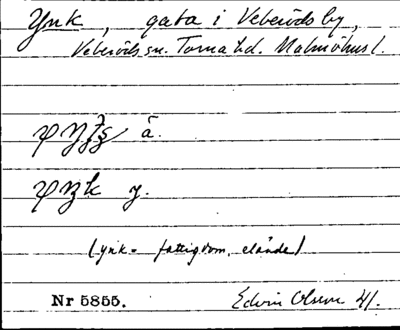 Ynk, gata i Veberöds by,
Veberöds sn. Torna hd. Malmöhus l.
å.
y.
(ynk = fattigdom, elände)
Nr 5855.
Edvin Olsson 41.